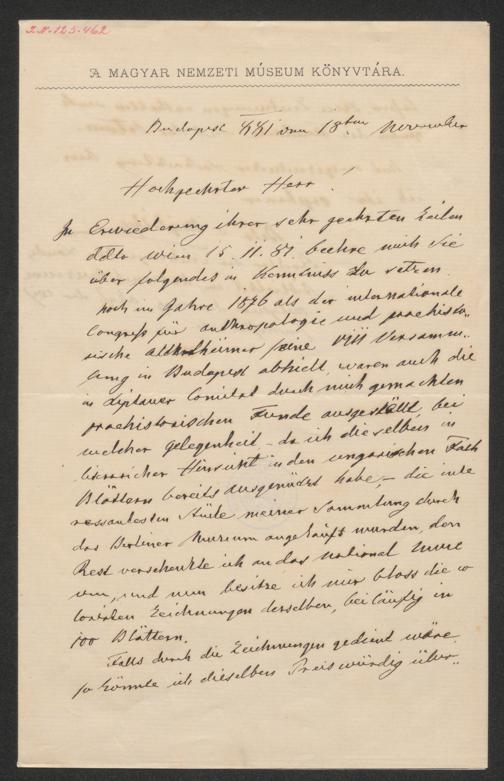 I.N. 125.462
A MAGYAR NEMZETI MÚSEUM KÖNYVTÁRA.
Budapest von 18ten November
Hochgeehrter Herr!
In Erwiederung ihrer sehr geehrten Zeilen
ddto Wien 15. 11. 81. beehre mich Sie
über folgendes in Kenntniss zu setzen.
Noch im Jahre 1876 als der internationale
Congress für anthropologie und praehisto-
rische althertümer seine VIII Versamm-
lung in Budapest abhielt, waren auch die
in Liptauer Comitat durch mich gemachten
praehistorischen Funde ausgestellt, bei
welcher gelegenheit – da ich dieselben in
literarischer Hinsicht in den ungarischen Fach
Blättern bereits ausgenützt habe, – die inte
ressantesten Stücke meiner Sammlung durch
das Berliner Museum angekauft wurden, den
Rest verschenkte ich an das National Muse
um, und nun besitze ich nur bloss die co
lorirten Zeichnungen derselben, beiläufig in
100 Blättern.
Falls durch die Zeichnungen gedient wäre,
so könnte ich dieselben Preiswürdig über-